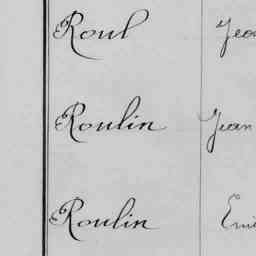 Roul Jea
Roulin Jean
Roulin Emi